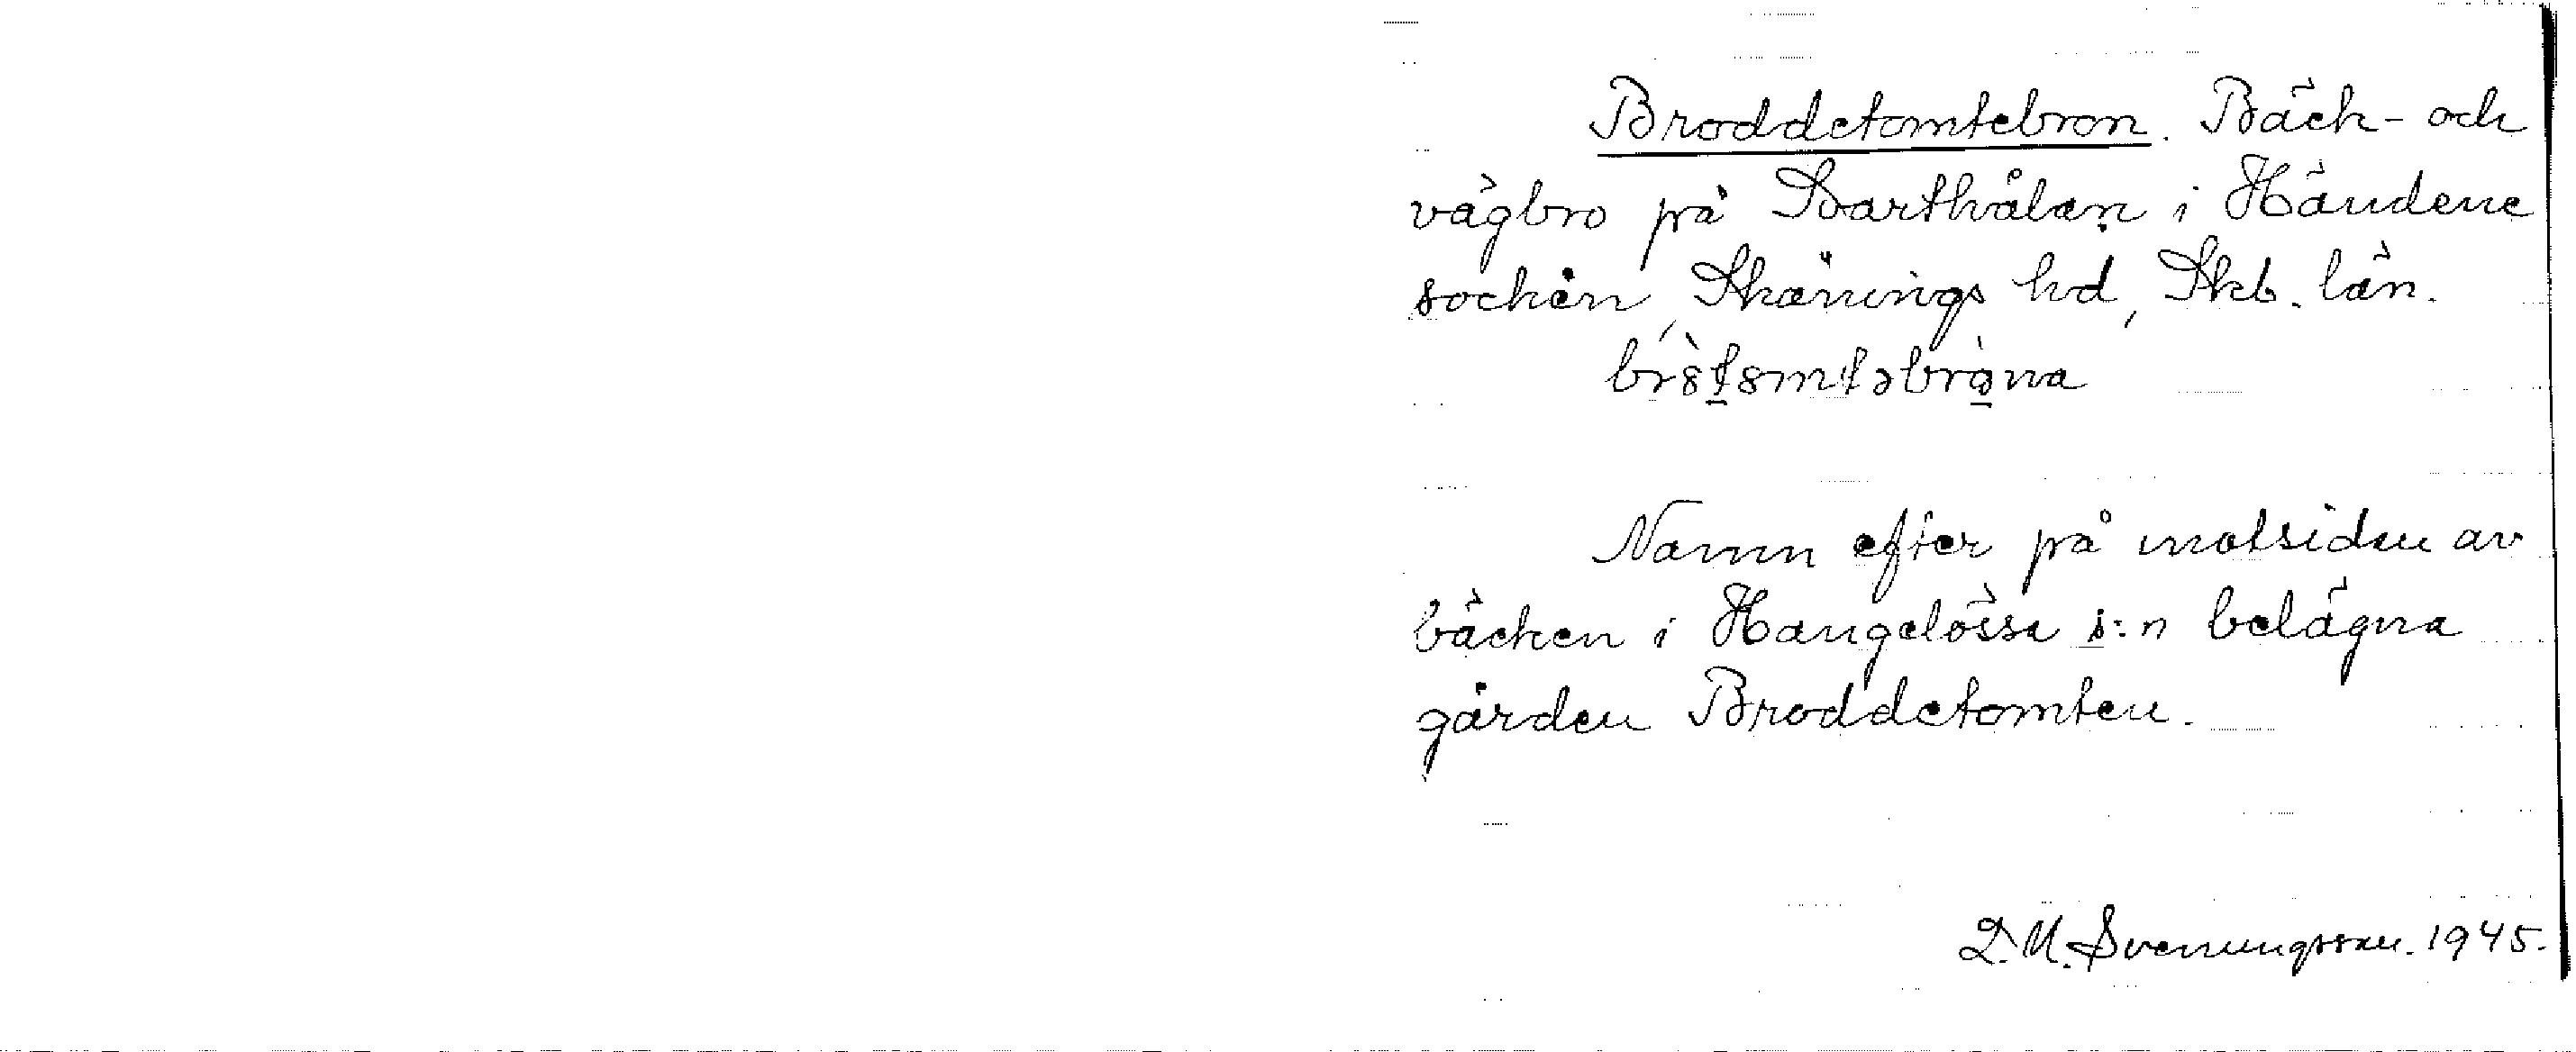 Broddetomtebron. Bäck- och
vägbro på Svarthålan i Händene
socken, Skånings hd, Skb. län.
Namn efter på motsidan av
bäcken i Hangelösa s:n belägna
gården Broddetomten.
D. M. Svenungsson. 1945.